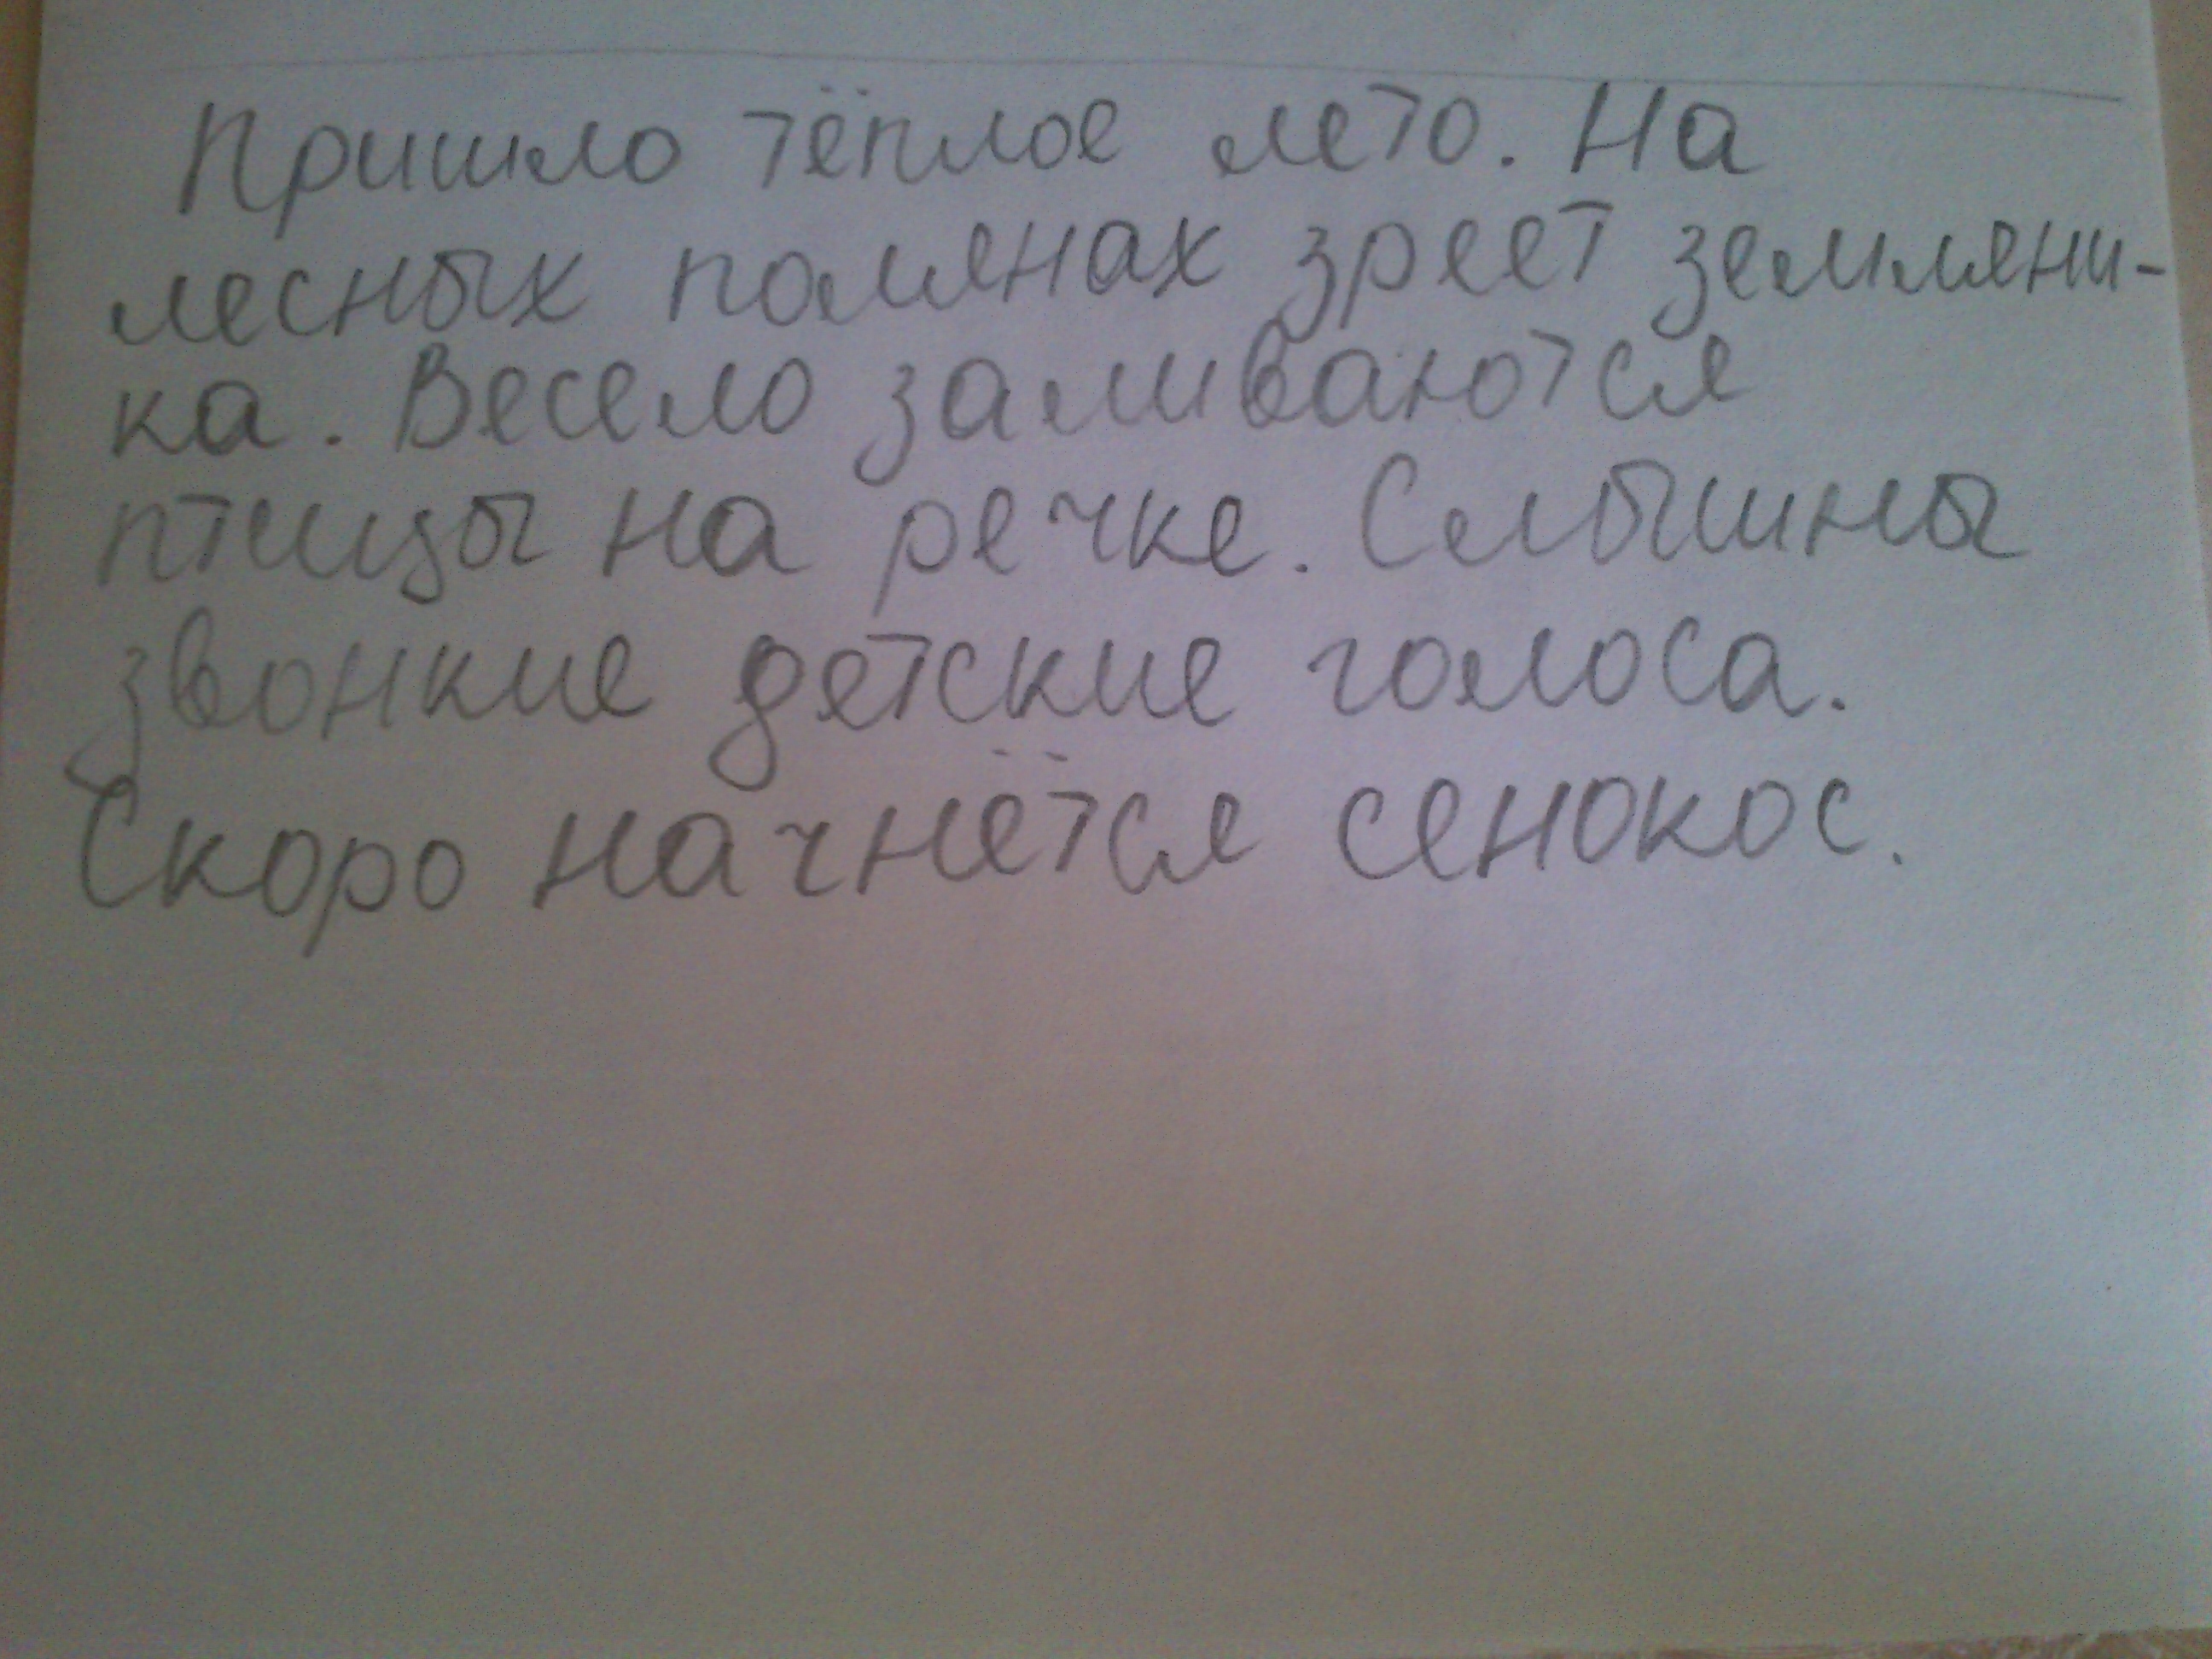 Пришло тёплое лето. На
лесных полянах зреет земляни-
ка. Весело заливаются
птицы на речке. Слышны
звонкие детские голоса.
Скоро начнётся сенокос.